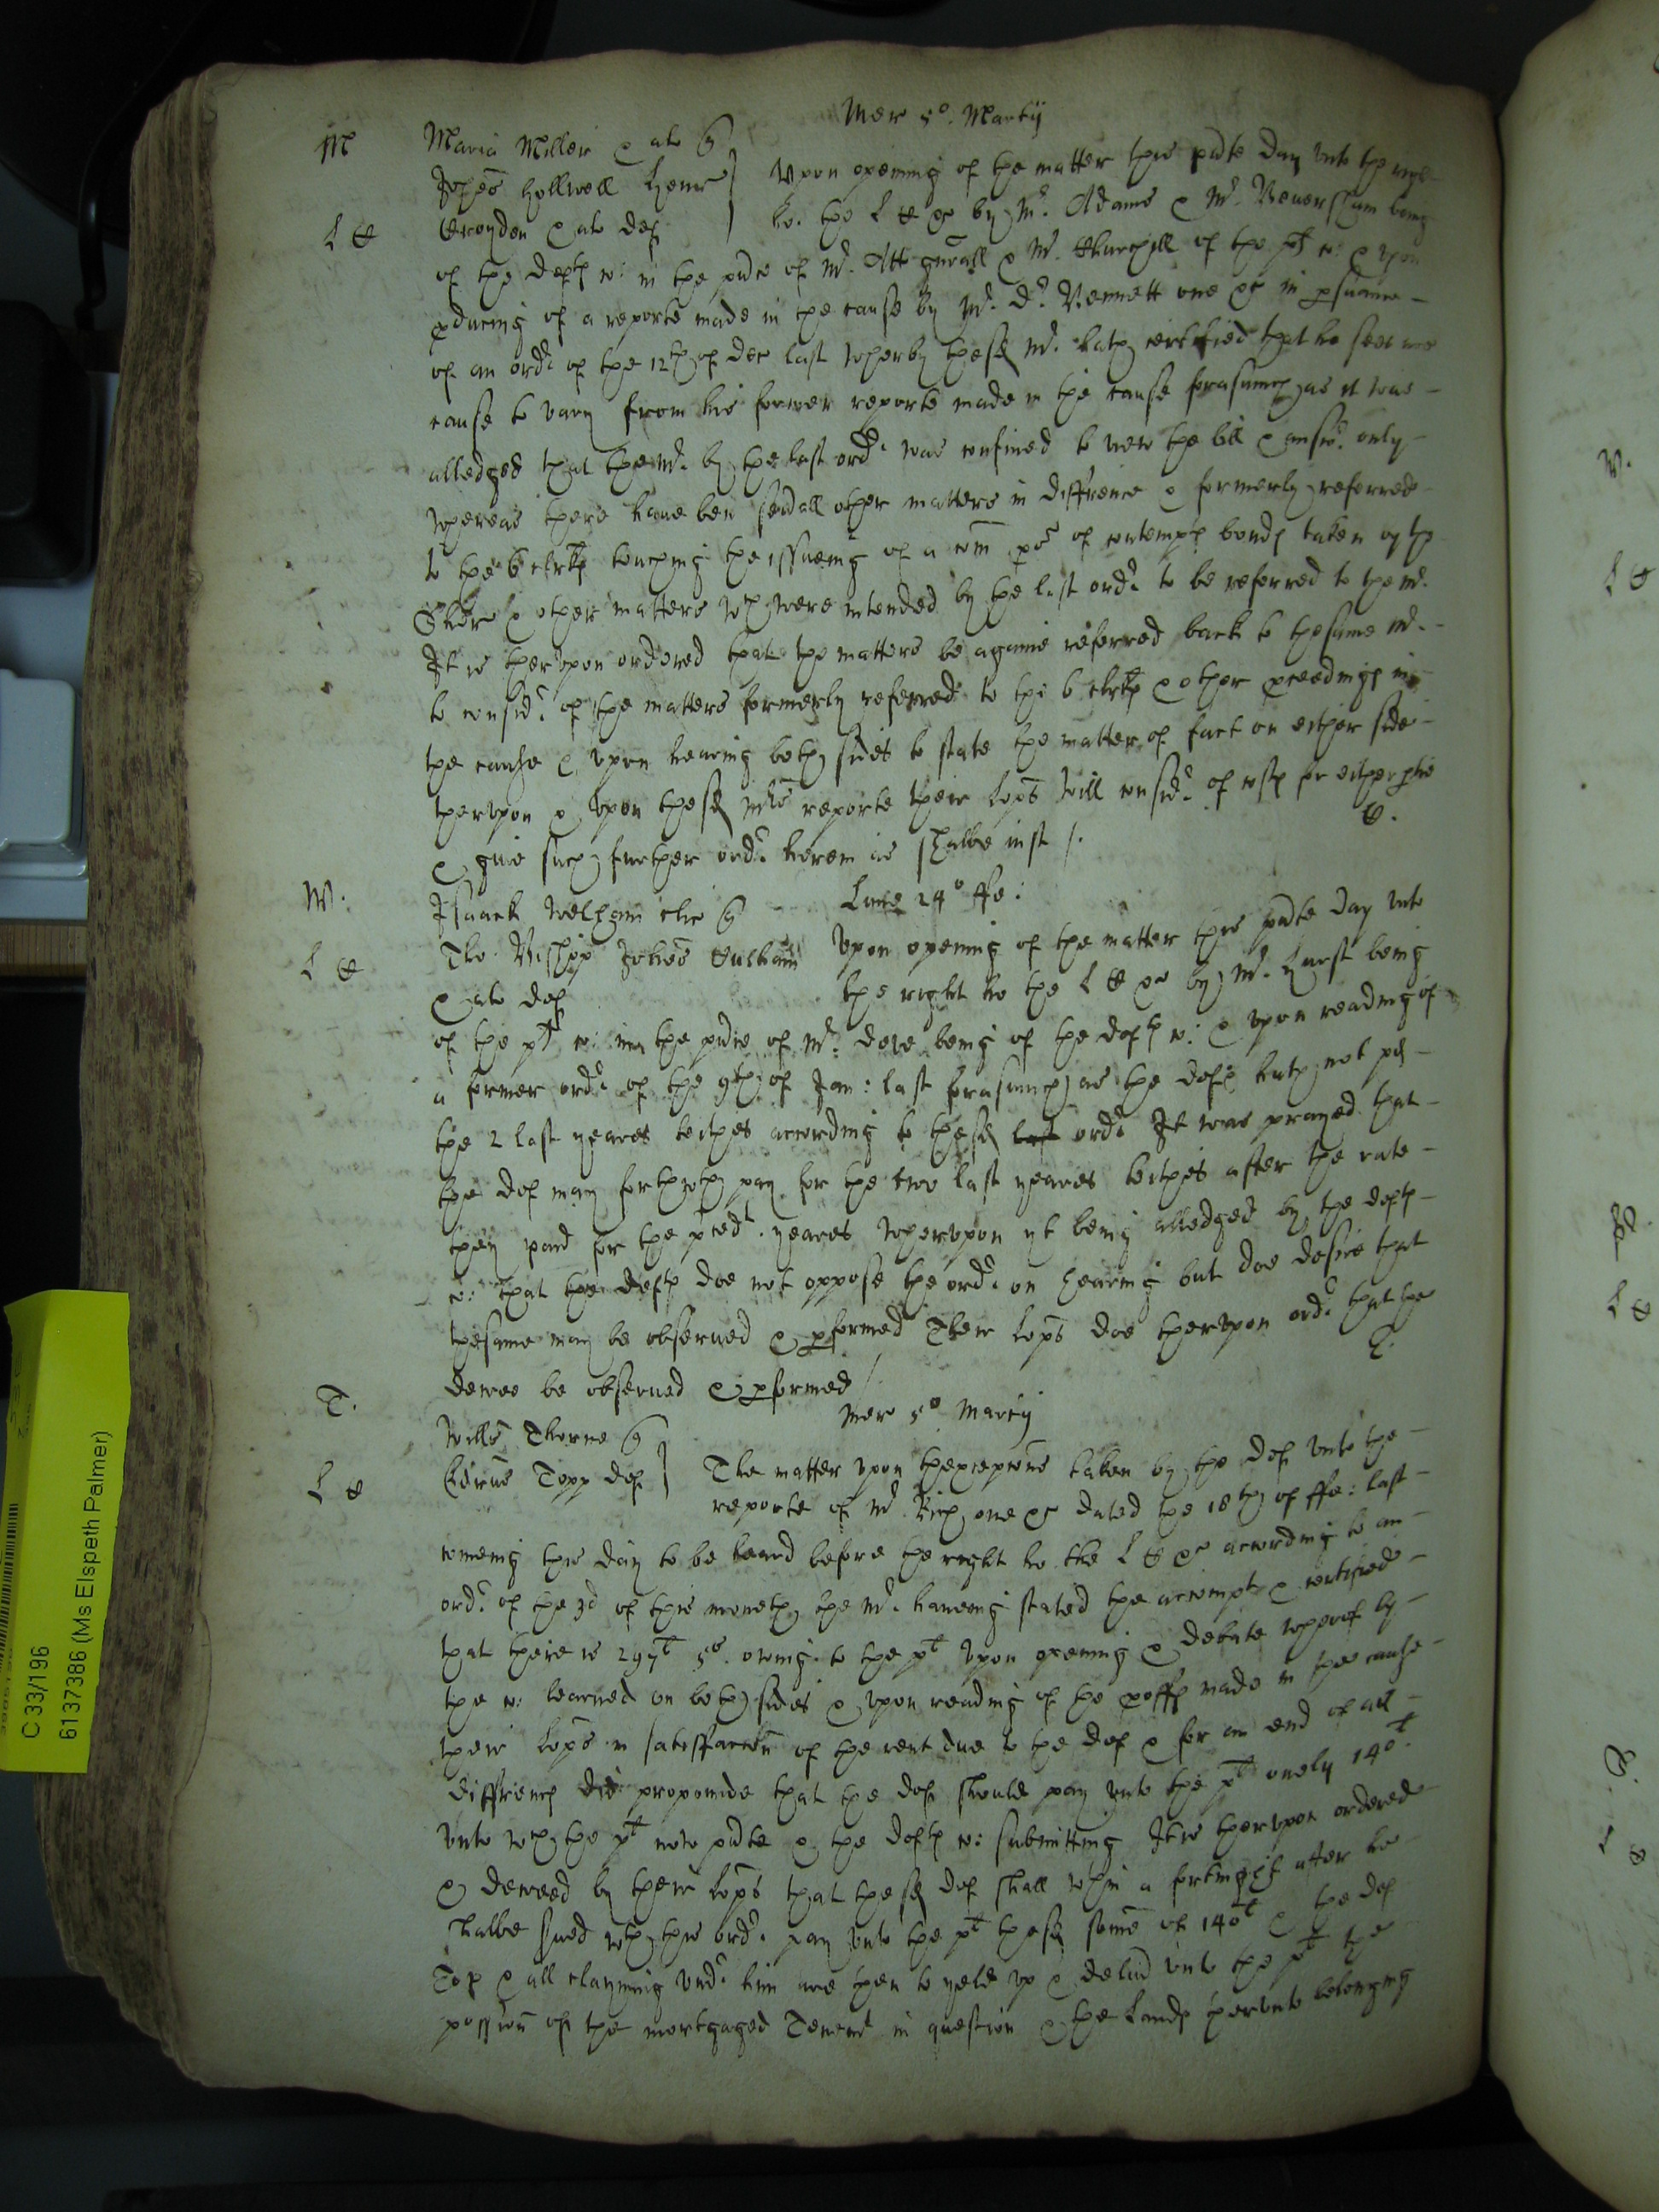 Mer 5o. Martij
M Maria Miller & al q
Johes Hollwell Henr Upon opening of the matter this pnte day unto the right
L C Croyden & al def ho. the L C &c by Mr. Adams & Mr. being
of the defts co: in the pnce of Mr. Att gnrall & Mr. Churchill of the plts co: & upon
pducing of a reporte made in the cause by Mr. Dr. Bennett one &c in psuance
of an ordr. of the 12th of Dec last wherby the sd Mr. hath certified that he sees noe
cause to vary from his former reporte made in the cause forasmuch as it was
alledged that the Mr. by the last ordr. was confined to view the bill & answr. only
whereas there have ben sevall other matters in diffrence & formerly referred
to the 6 clrks touching the issueing of a com pcs of contempt bonds taken by the
Sher & other matters wch were intended by the last ordr. to be referred to the Mr.
It is therupon ordered that the matters be againe referred back to the same Mr.
to considr. of the matters formerly referred to the 6 clrks & other pceedings in
the cause & upon hearing both sides to state the matter of fact on either side
therupon & upon the sd Mrs reporte their Lopps will considr. of costs for either ptie
& give such further ordr. herein as shalbe just /. C.
Lune 24o Fe:
W. Isaack Welham clic q
Tho. Bishop Johes Upon opening of the matter this pnte day unto
L C & al def the right ho the L C &c by Mr. Hurst being
of the plts co: in the pnce of Mr. being of the defts co: & upon reading of
a former ordr. of the 9th of Jan: last forasmuch as the deft hath not pd
the 2 last yeares teithes according to the sd last ordr. It was prayed that
the def may forthwth pay for the two last yeares teithes after the rate
they paid for the pcedt. yeares wherupon yt being alledged by the defts
co: that the defts doe not oppose the ordr. on hearing but doe desire that
the same may be observed & pformed Their Lopps doe therupon ordr. that the
decree be observed & pformed / C.
Mer 5o Martij
T. Willus Thorne q
L C Edrus Topp def The matter upon thexcepcions taken by the def unto the
reporte of Mr Rich one &c dated the 18th of Fe: last
comeing this day to be heard before the right ho the L C &c according to an
ordr. of the 3d of this moneth the Mr. haveing stated the accompt & certified
that there is 297l 5s. oweing to the plt Upon opening & debate wherof by
the co: learned on both sides & upon reading of the proffs made in the cause
their Lopps in satisffaccon of the rent due to the def & for an end of all
diffrencs did propounde that the def should pay unto the plt onely 140l.
unto wch the plt now pnte & the defts co: submitting It is therupon ordered
& decreed by their Lopps that the sd def shall wthin a fortnight after he
shalbe sved wth this ordr. pay unto the plt the sd some of 140l & the def
Top & all clayming undr. him are then to yeld up & delivd unto the plt the
possion of the mortgaged Tenemt in question & the lands therunto belonging
C 33/196
6137386 (Ms Elspeth Palmer)